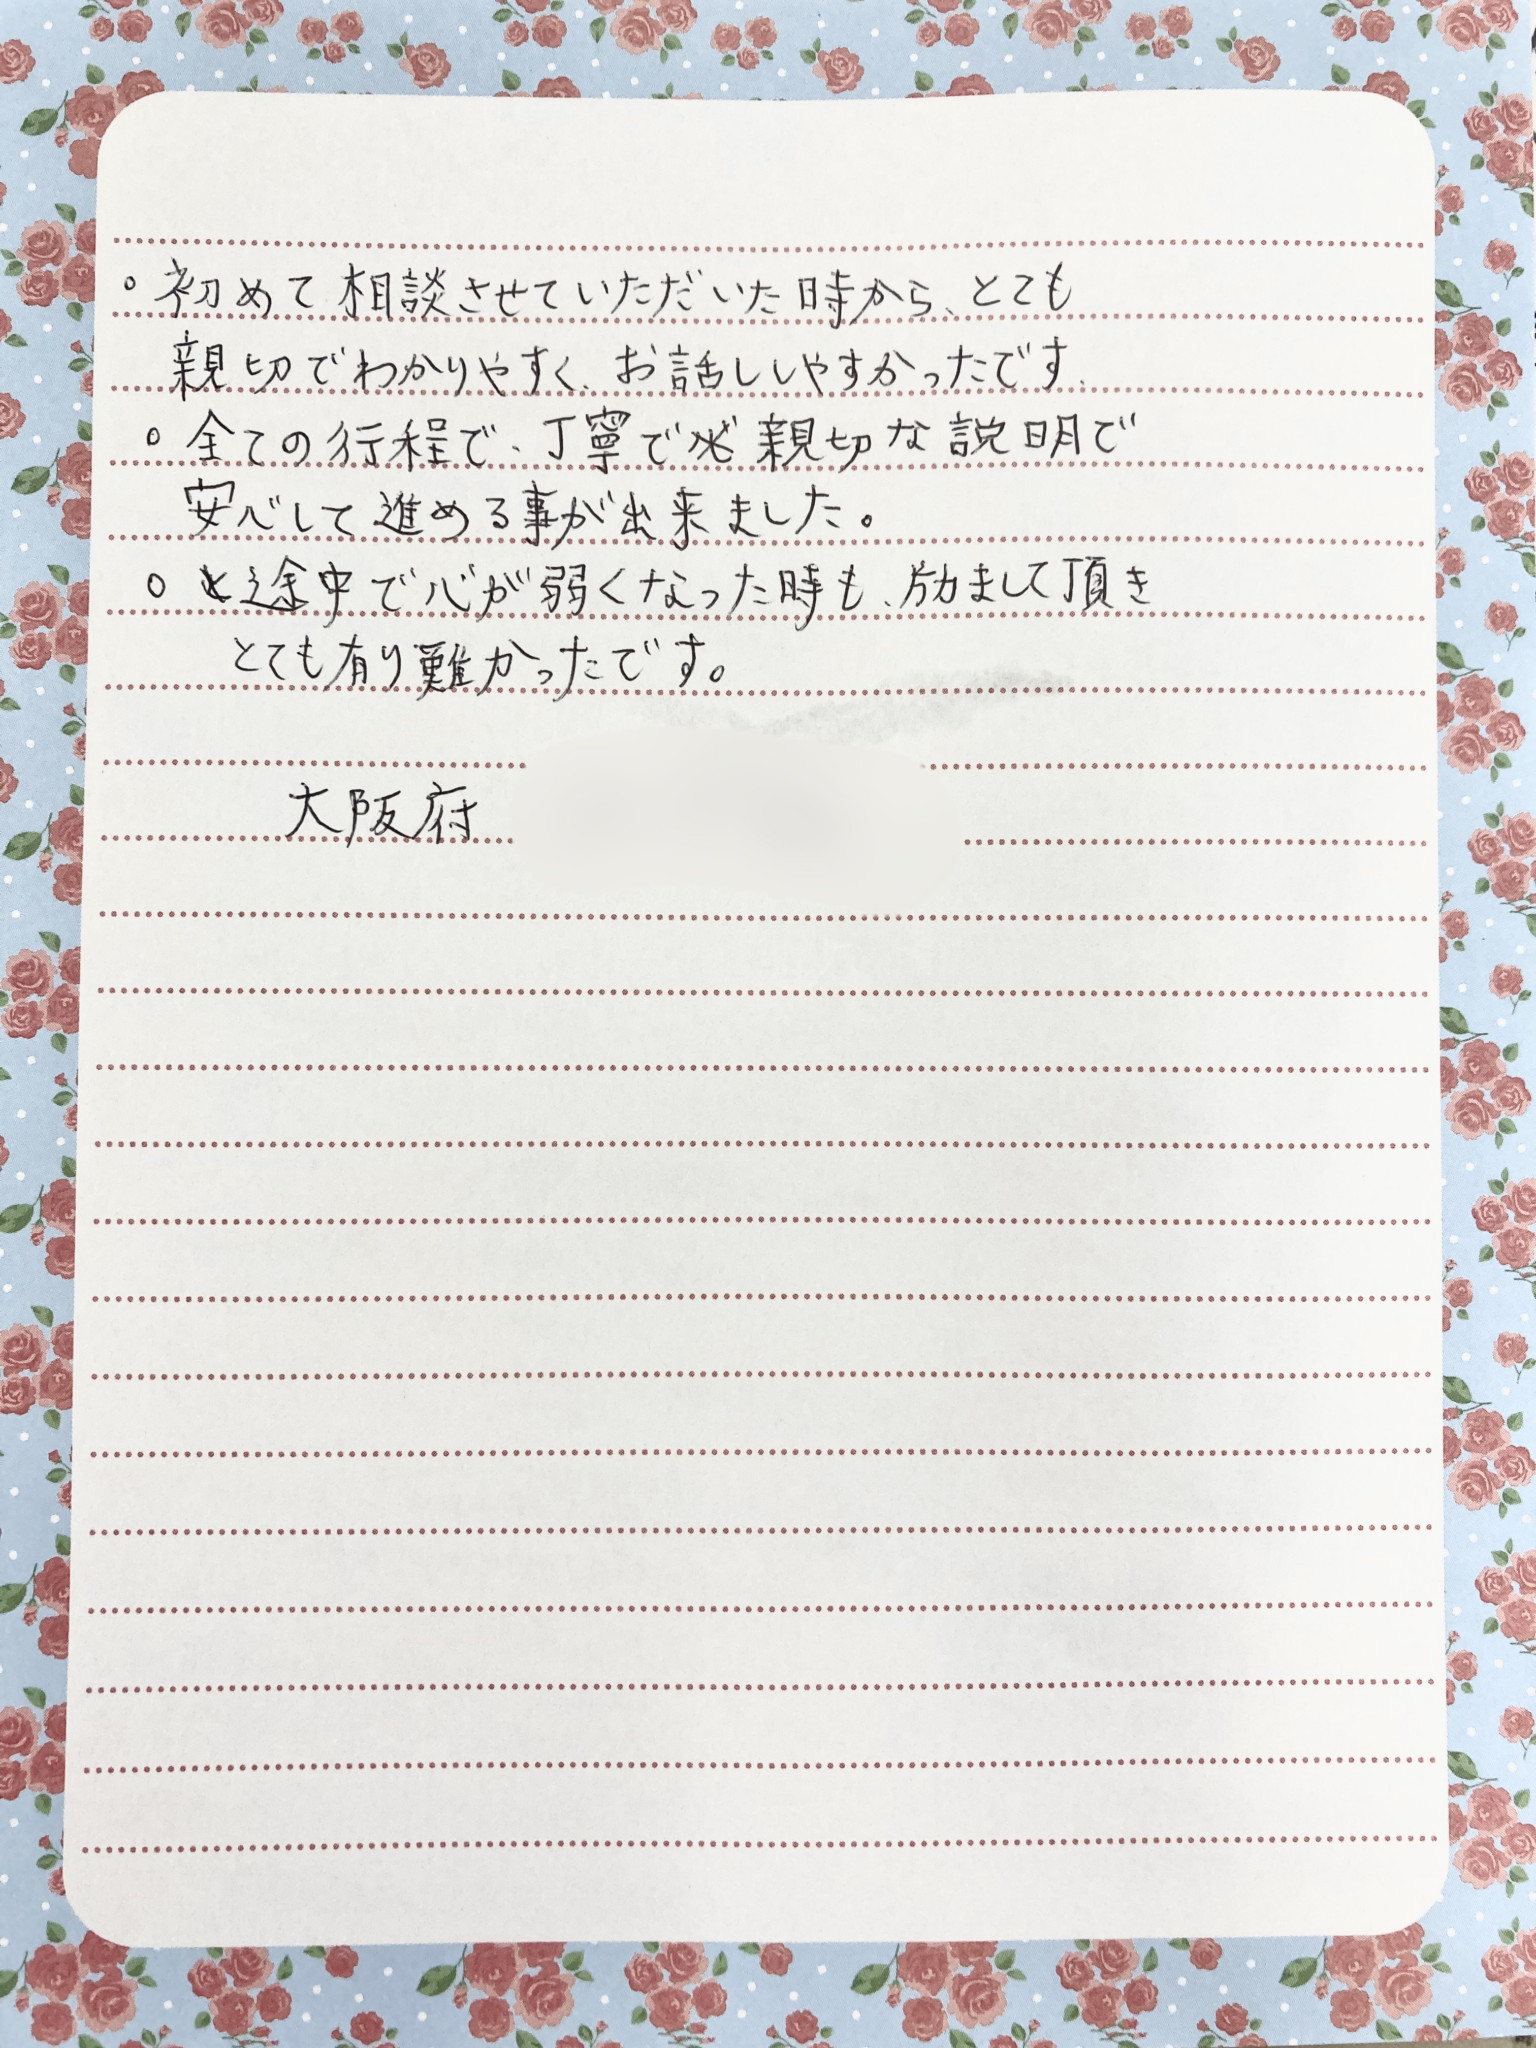 。初めて相談させていただいた時から、とても
親切でわかりやすく、お話ししやすかったです、
。全ての行程で、丁寧で親切な説明で
安心して進める事が出来ました。
○途中で心が弱くなった時も、励まして頂き
とても有り難かったです。
大阪府